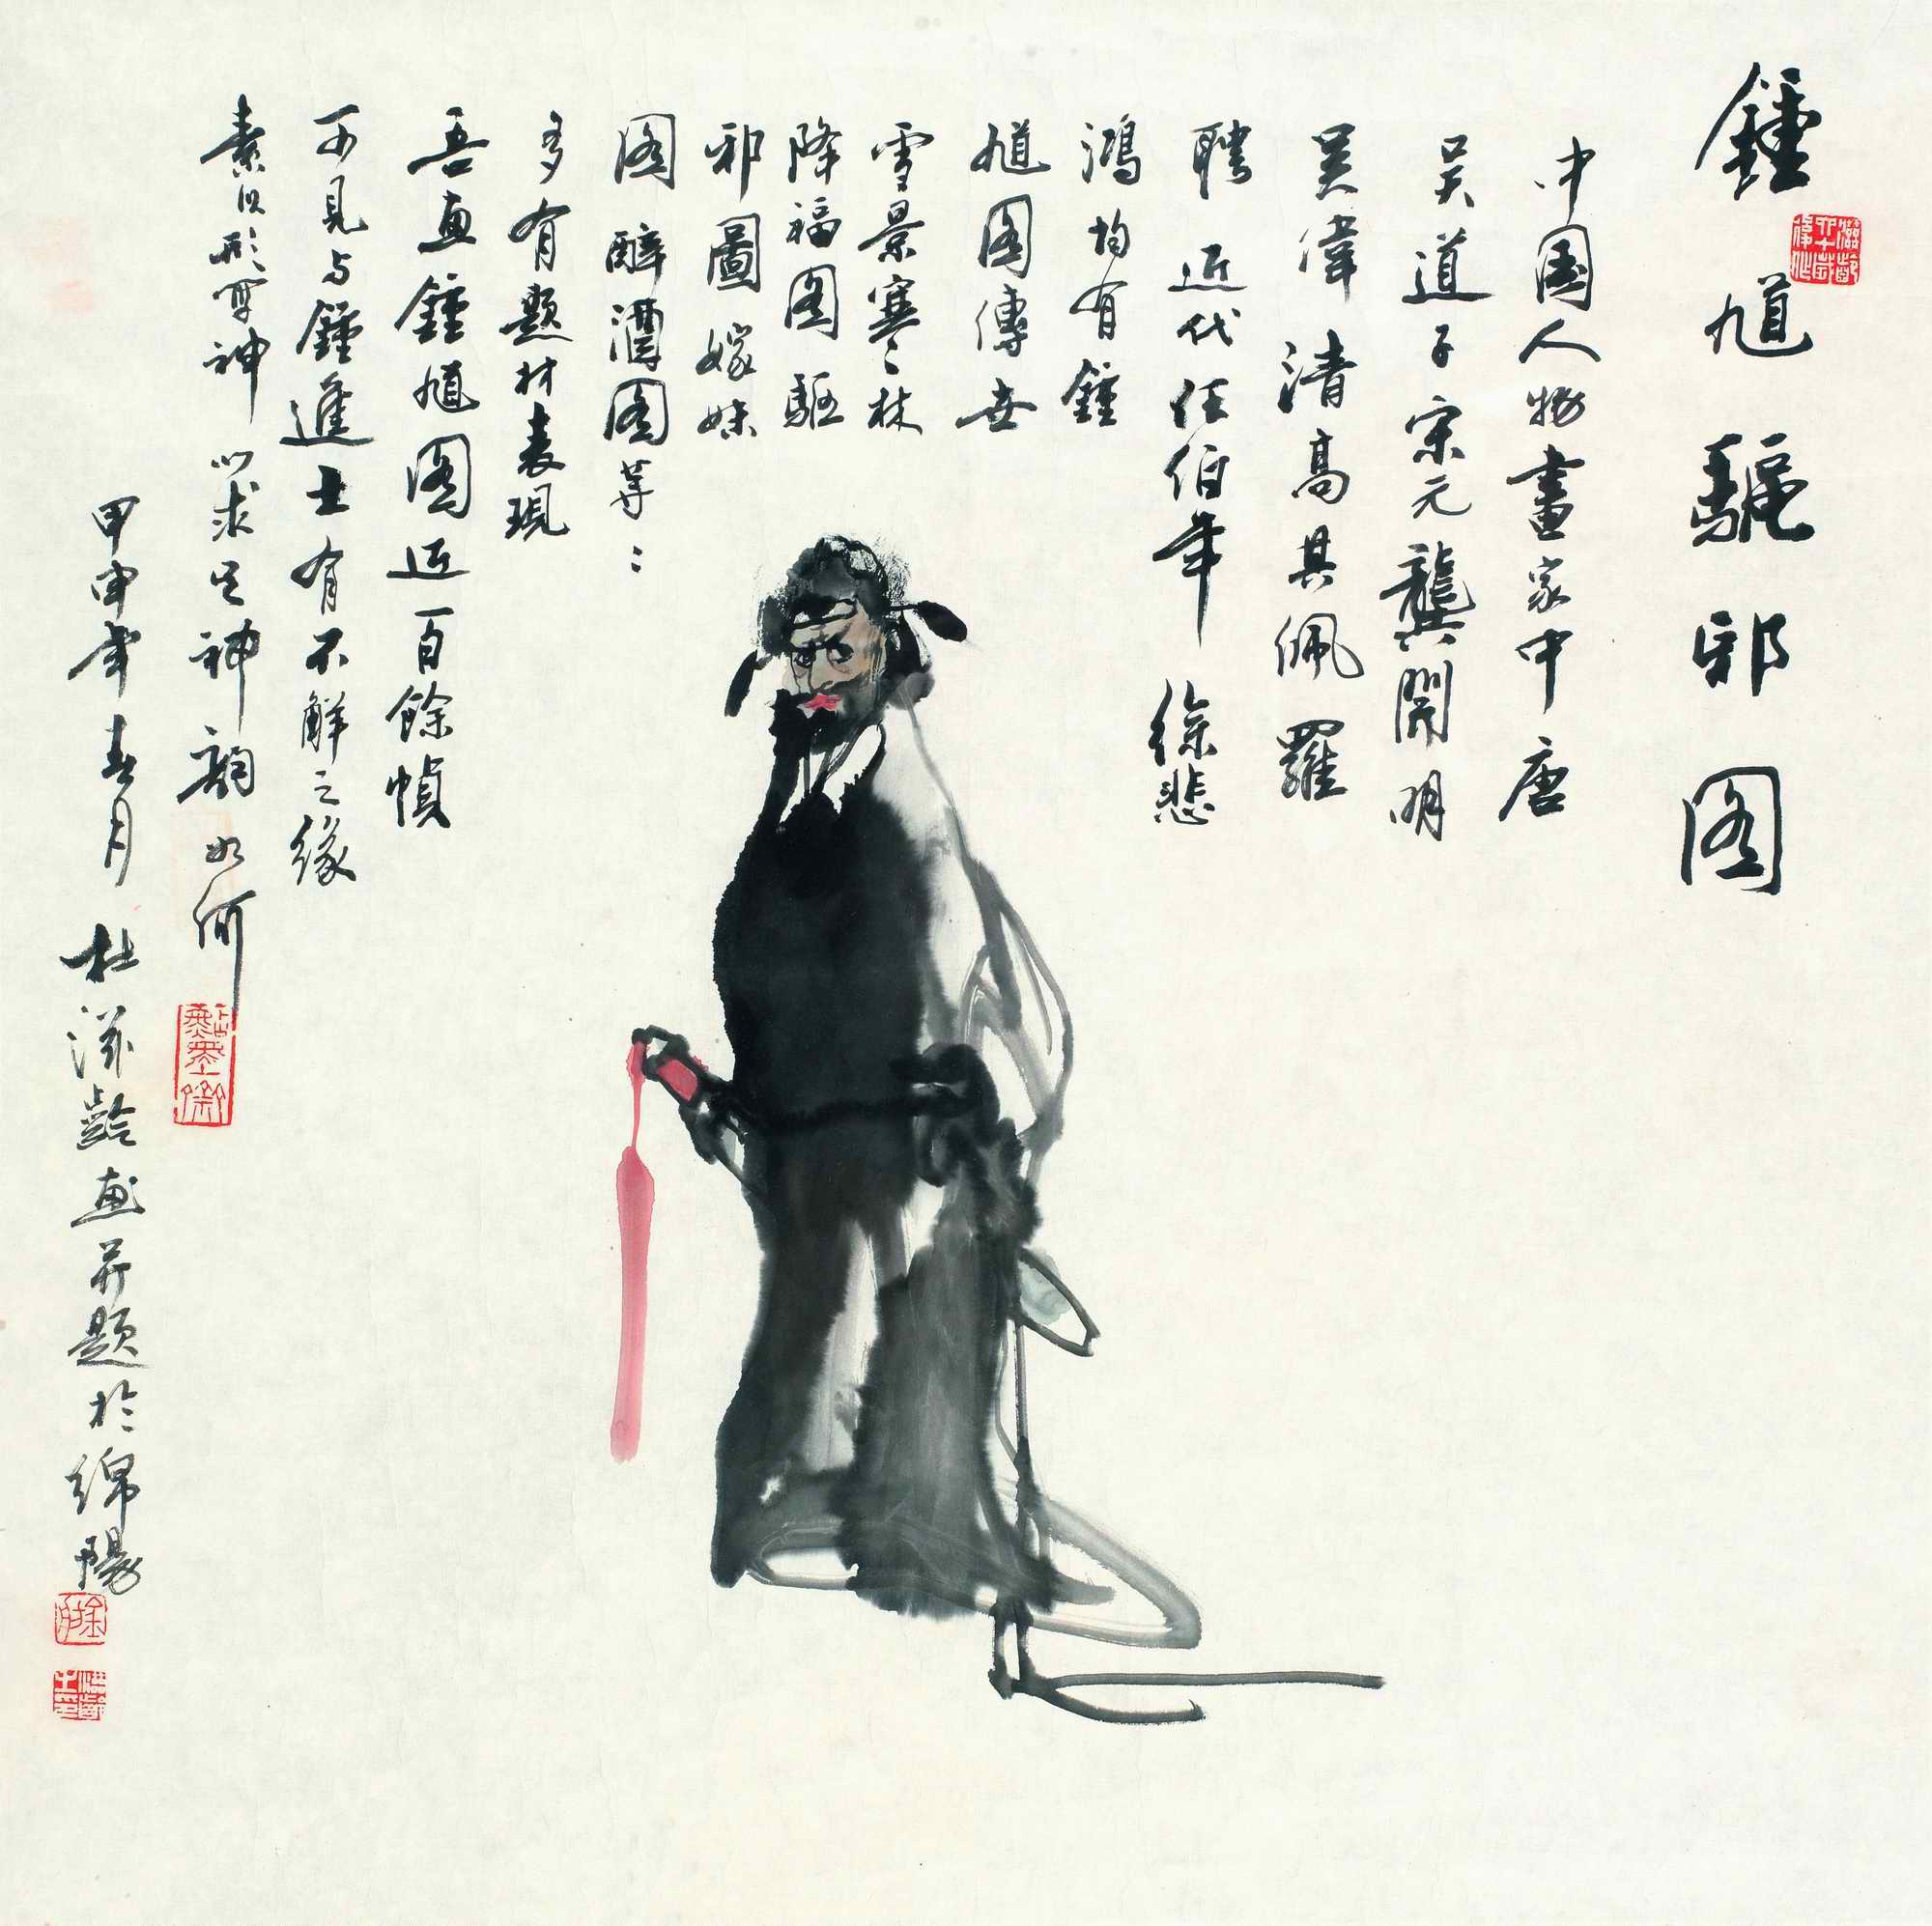 鍾馗驅邪图
中国人物畫家中唐
吴道子宋元龔開明
吴偉清高其佩羅
聘近代任伯年徐悲
鴻均有鍾
馗图傳世
雪景寒林
降福图驅
邪圖嫁妹
图醉酒图等
多有题材表現
吾画鍾馗图近百餘幀
可見与鍾進士有不解之缘
素以形写神以求其神韵如何
甲申年春月杜濚齡画并题於綿陽